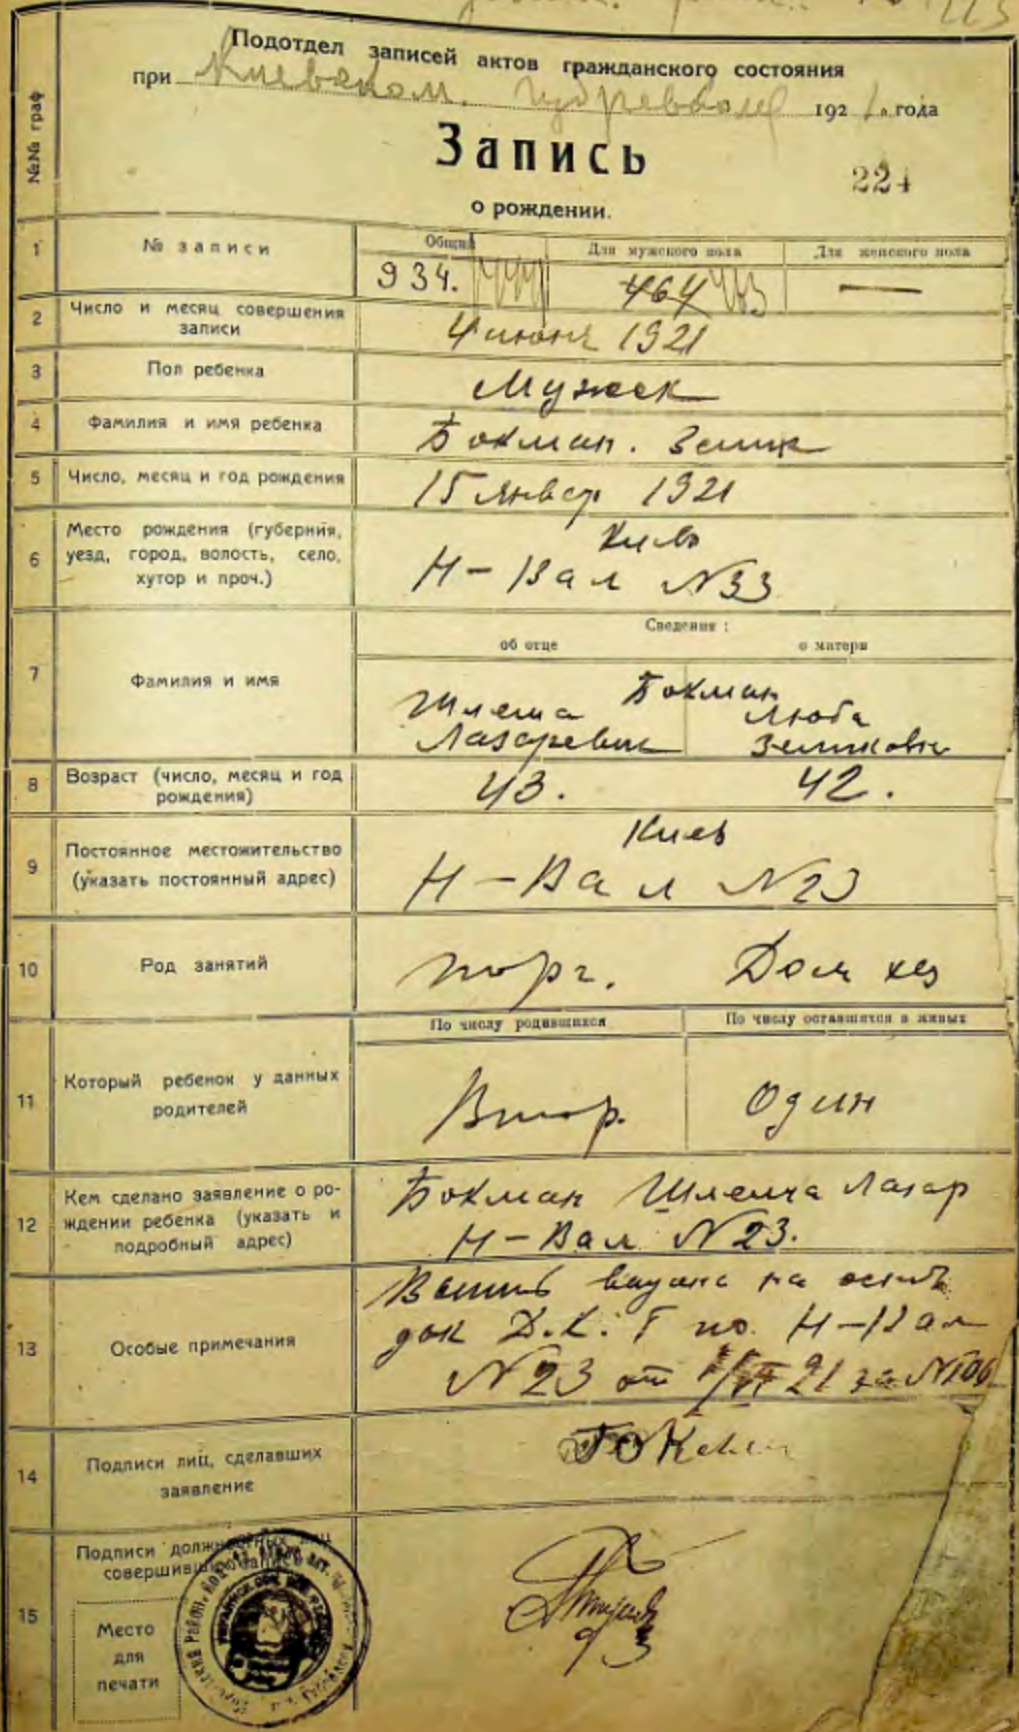 Подотдел записей актов гражданского состояния
при Киевском Губревкоме 1921 года
№№ граф
Запись
224
о рождении.
1 № записи
Общий Для мужского пола Для женского пола
934. 464 443 —
2 Число и месяц совершения
записи
4 июня 1921
3 Пол ребенка
Мужск
4 Фамилия и имя ребенка
Бокман. Зелик
5 Число, месяц и год рождения
15 январ 1921
6 Место рождения (губерния,
уезд, город, волость, село,
хутор и проч.)
Киев
Н-Вал №33
7 Фамилия и имя
Сведения:
об отце о матери
Бокман
Шлема Люба
Лазаревич Зеликовн
8 Возраст (число, месяц и год
рождения)
43. 42.
9 Постоянное местожительство
(указать постоянный адрес)
Киев
Н-Вал №23
10 Род занятий
торг. Дом хоз
11 Который ребенок у данных
родителей
По числу родившихся По числу оставшихся в живых
Втор. Один
12 Кем сделано заявление о ро-
ждении ребенка (указать и
подробный адрес)
Бокман Шлема Лазар
Н-Вал №23.
13 Особые примечания
на
док Д.К. по. Н-Вал
№23 от 21 за
14 Подписи лиц, сделавших
заявление
15 Подписи должностных лиц
совершивших запись
Место
для
печати